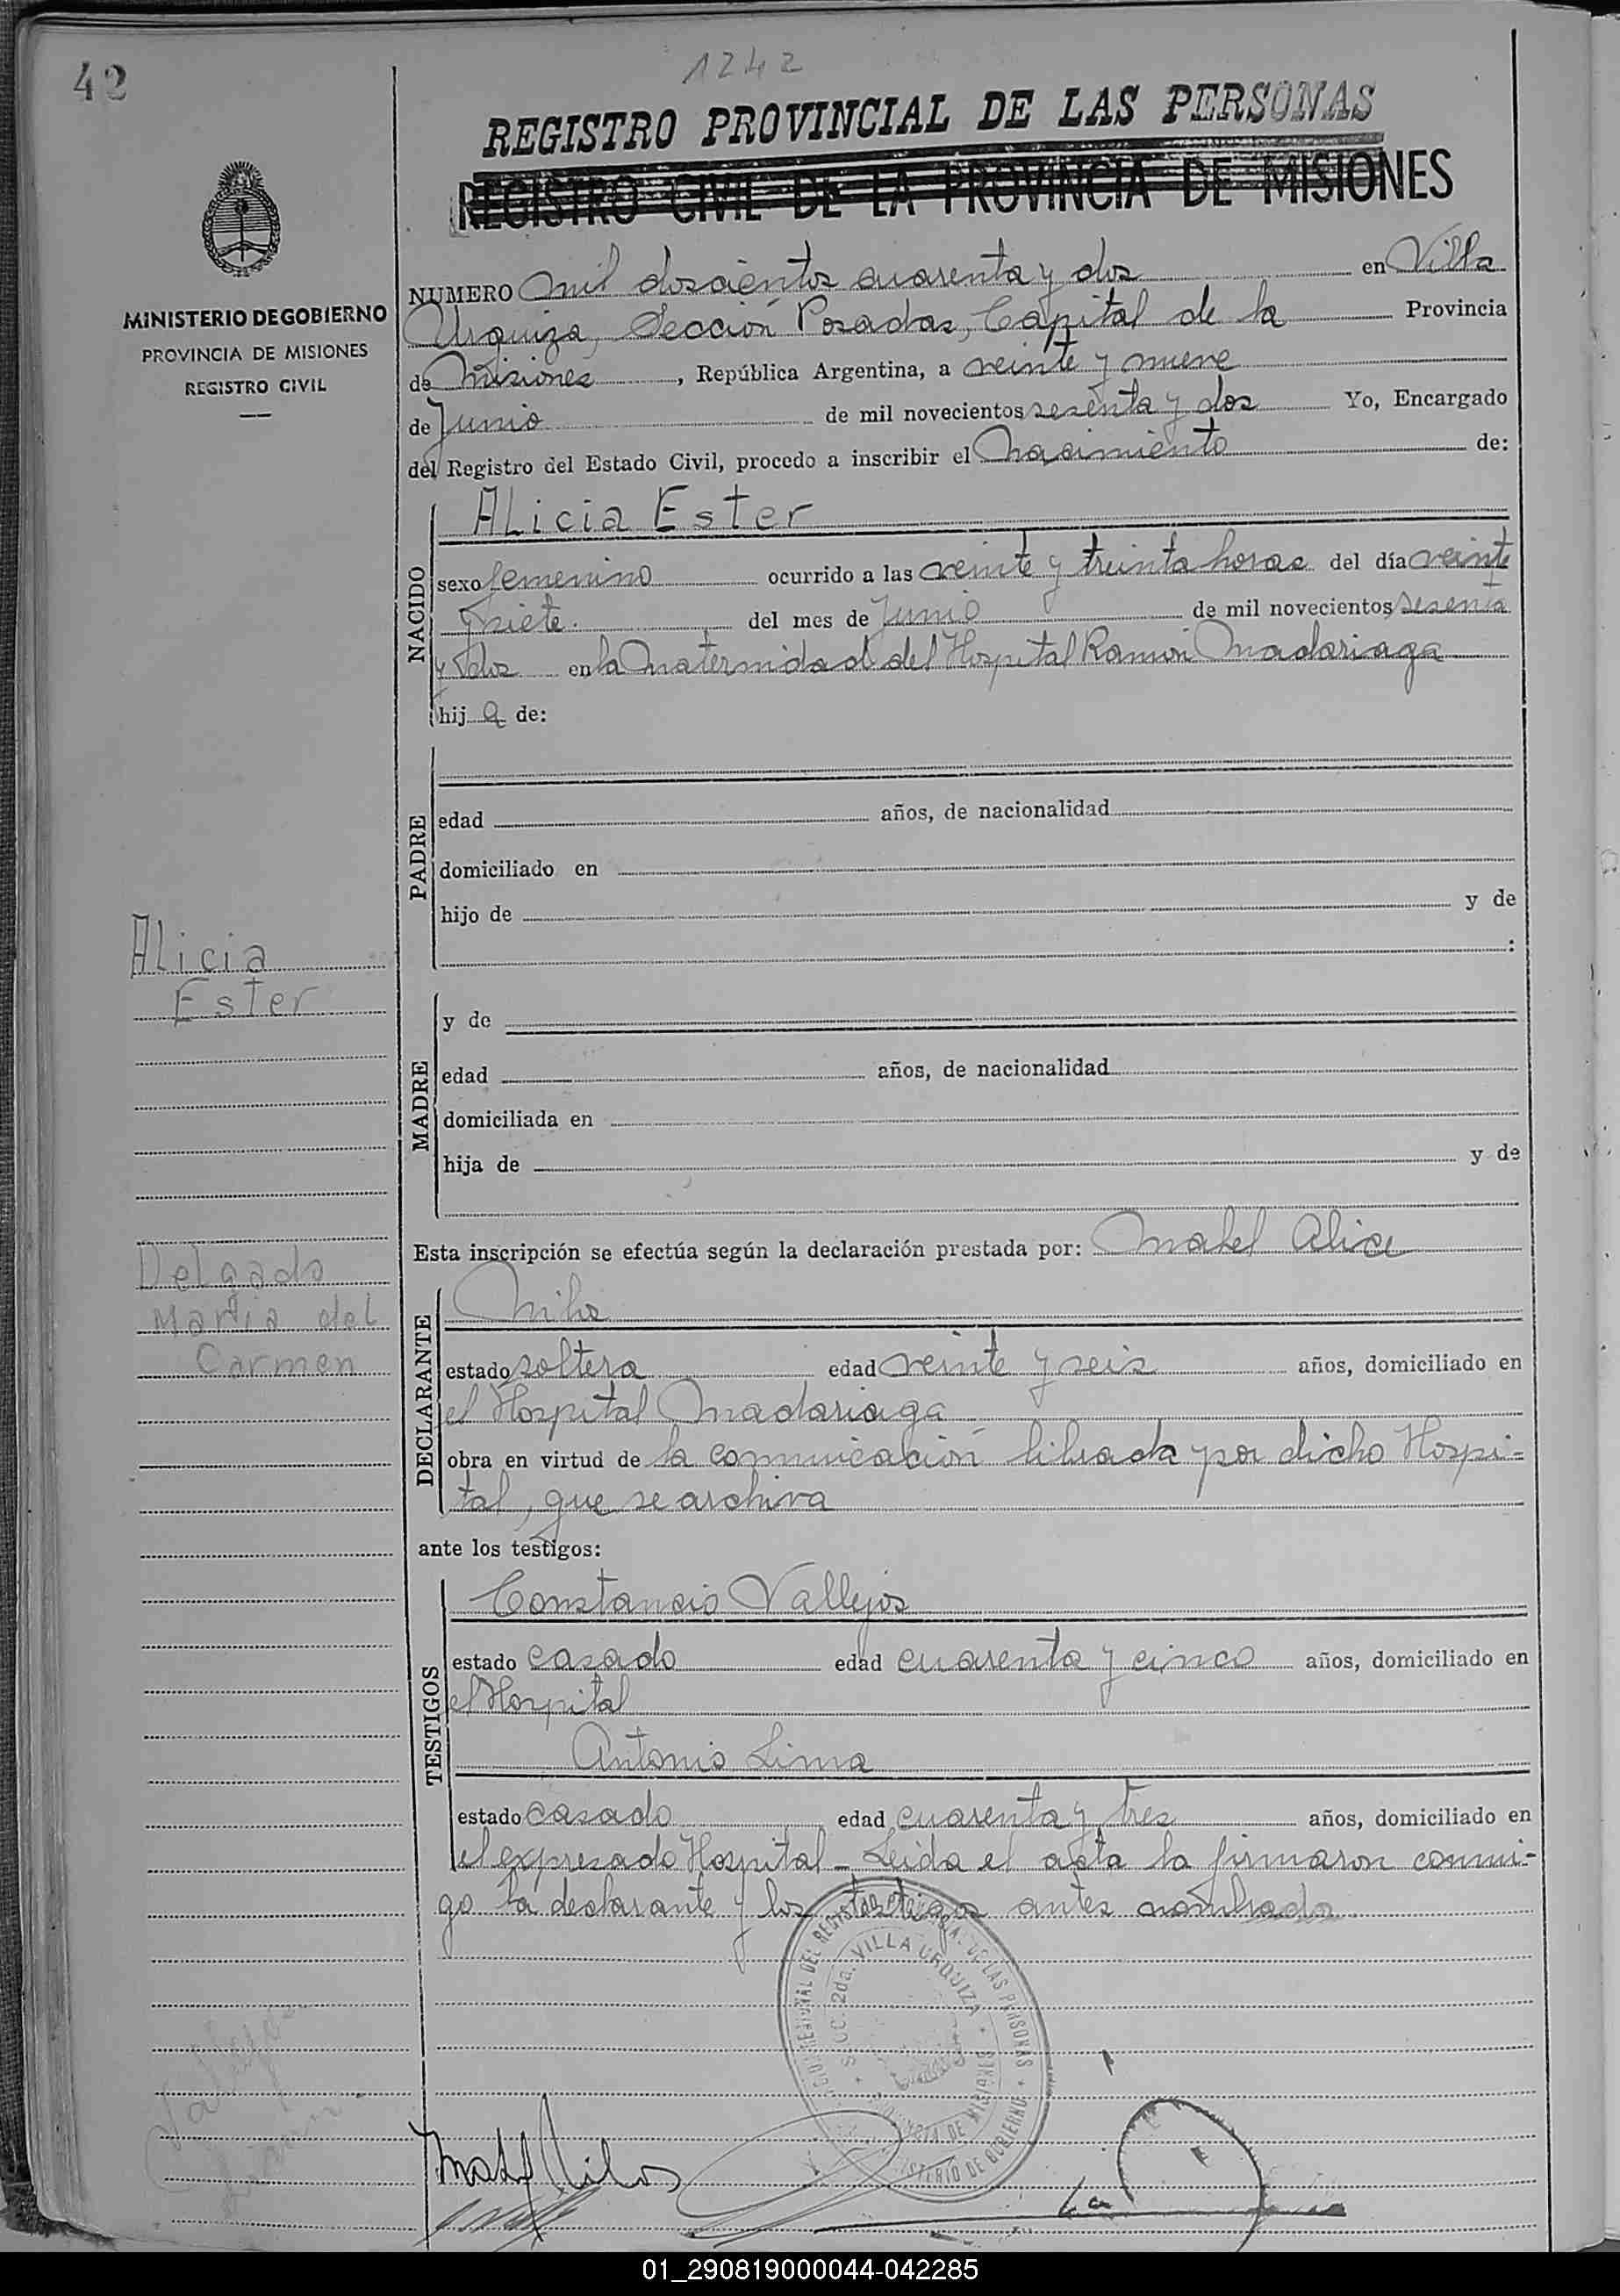 42
1242
REGISTRO PROVINCIAL DE LAS PERSONAS
REGISTRO CIVIL DE LA PROVINCIA DE MISIONES
MINISTERIO DE GOBIERNO
PROVINCIA DE MISIONES
REGISTRO CIVIL
NUMERO mil doscientos cuarenta y dos en Villa
Urquiza, Sección Posadas, Capital de la Provincia
de Misiones, República Argentina, a veinte y nueve
de Junio de mil novecientos sesenta y dos Yo, Encargado
del Registro del Estado Civil, procedo a inscribir el Nacimiento de:
NACIDO
Alicia Ester
sexo femenino ocurrido a las veinte y treinta horas del día veinte
y siete. del mes de Junio de mil novecientos sesenta
y dos en la Maternidad del Hospital Ramón Madariaga
hij a de:
PADRE
edad años, de nacionalidad
domiciliado en
hijo de y de
:
Alicia
Ester
MADRE
y de
edad años, de nacionalidad
domiciliada en
hija de y de
Delgado
Maria del
Carmen
Esta inscripción se efectúa según la declaración prestada por: Mabel Alice
DECLARANTE
estado soltera edad veinte y seis años, domiciliado en
el Hospital Madariaga
obra en virtud de la comunicación librada por dicho Hospi=
tal, que se archiva
ante los testigos:
TESTIGOS
Constancio Vallejos
estado casado edad cuarenta y cinco años, domiciliado en
el Hospital
Antonio Lima
estado casado edad cuarenta y tres años, domiciliado en
el expresado Hospital - Leida el acta la firmaron conmi-
go la declarante y los testigos antes nombrado
SECC. 2da. VILLA URQUIZA
01_290819000044-042285